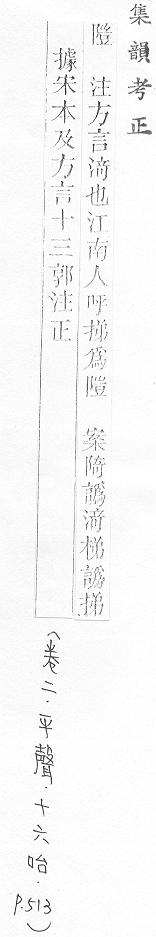 集韻考正
隑　注方言渏也江南人呼挮爲隑　案陭譌渏梯譌挮
據宋本及方言十三郭注正
（卷二．平聲．十六咍．p.513）